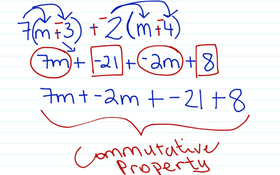 7(m+-3) + -2(m+-4)
7m + -21 + -2m + 8
7m + -2m + -21 + 8
Commutative
Property